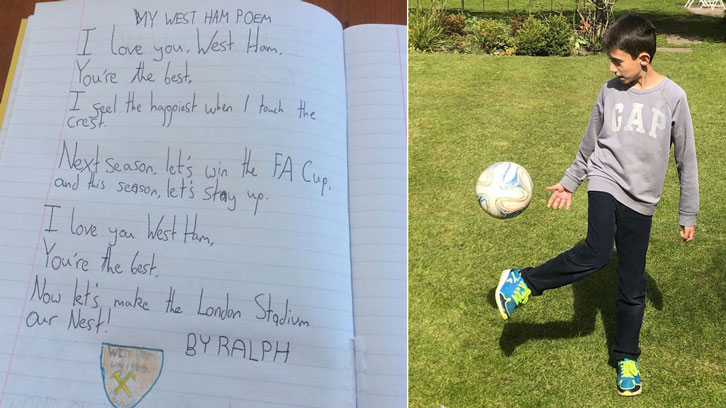 MY WEST HAM POEM
I love you, West Ham,
You're the best,
I feel the happiest when I touch the
crest.
Next season, let's win the FA Cup,
and this season, let's stay up.
I love you West Ham,
You're the best,
Now let's make the London Stadium
our Nest!
BY RALPH
WEST HAM
UNITED
GAP